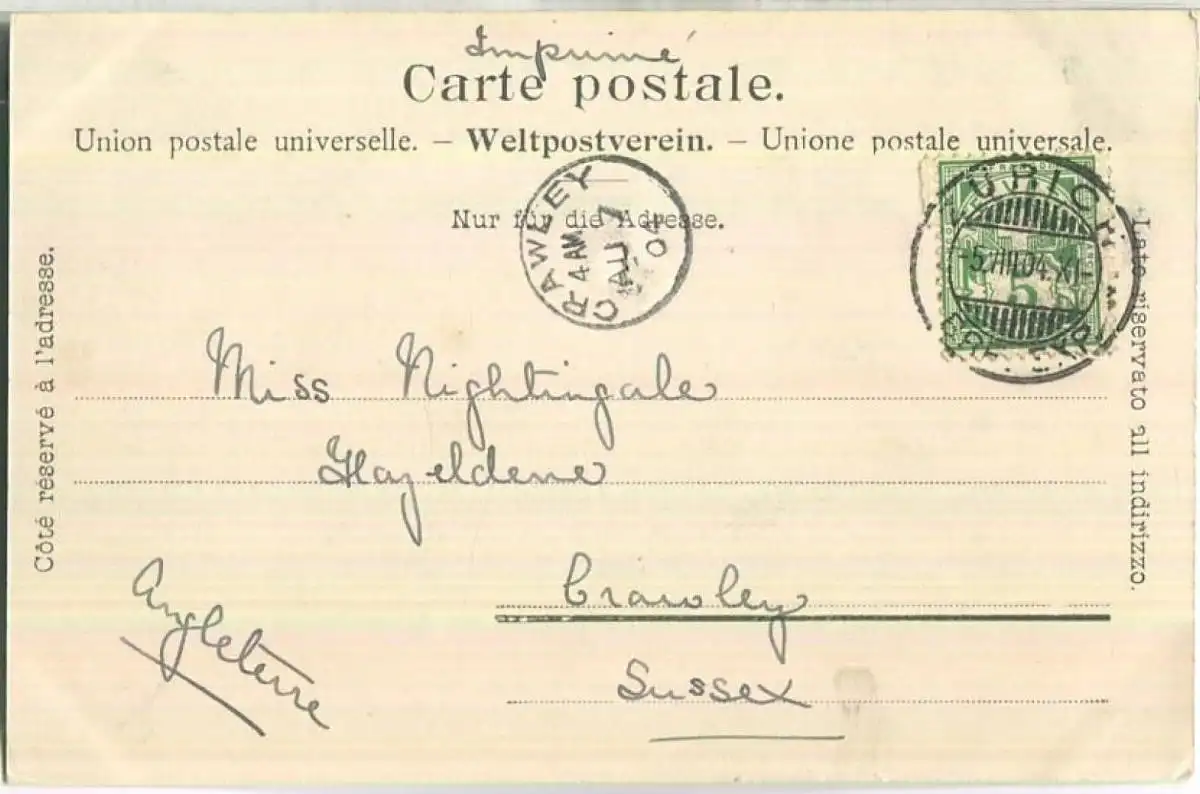 Imprimé
Carte postale.
Union postale universelle. – Weltpostverein. – Unione postale universale.
Nur für die Adresse.
CRAWLEY
4 AM
AU 7
04
ZÜRICH
-5.VIII.04.XI-
5
Côté réservé à l'adresse.
Lato riservato all indirizzo.
Miss Nightingale
Hazeldene
Crawley
Sussex
Angleterre